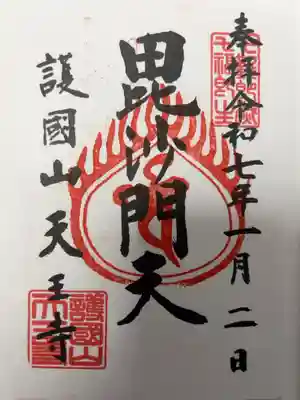 奉拝令和七年一月二日
毘沙門天
護國山天王寺
護國山